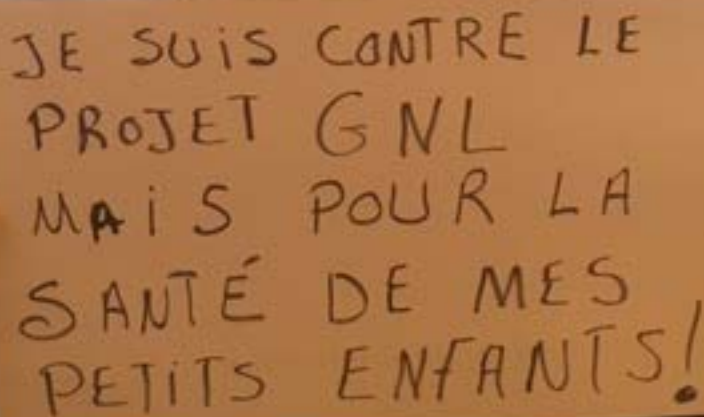 JE SUiS CONTRE LE
PROJET GNL
MAiS POUR LA
SANTÉ DE MES
PETiTS ENFANTS!